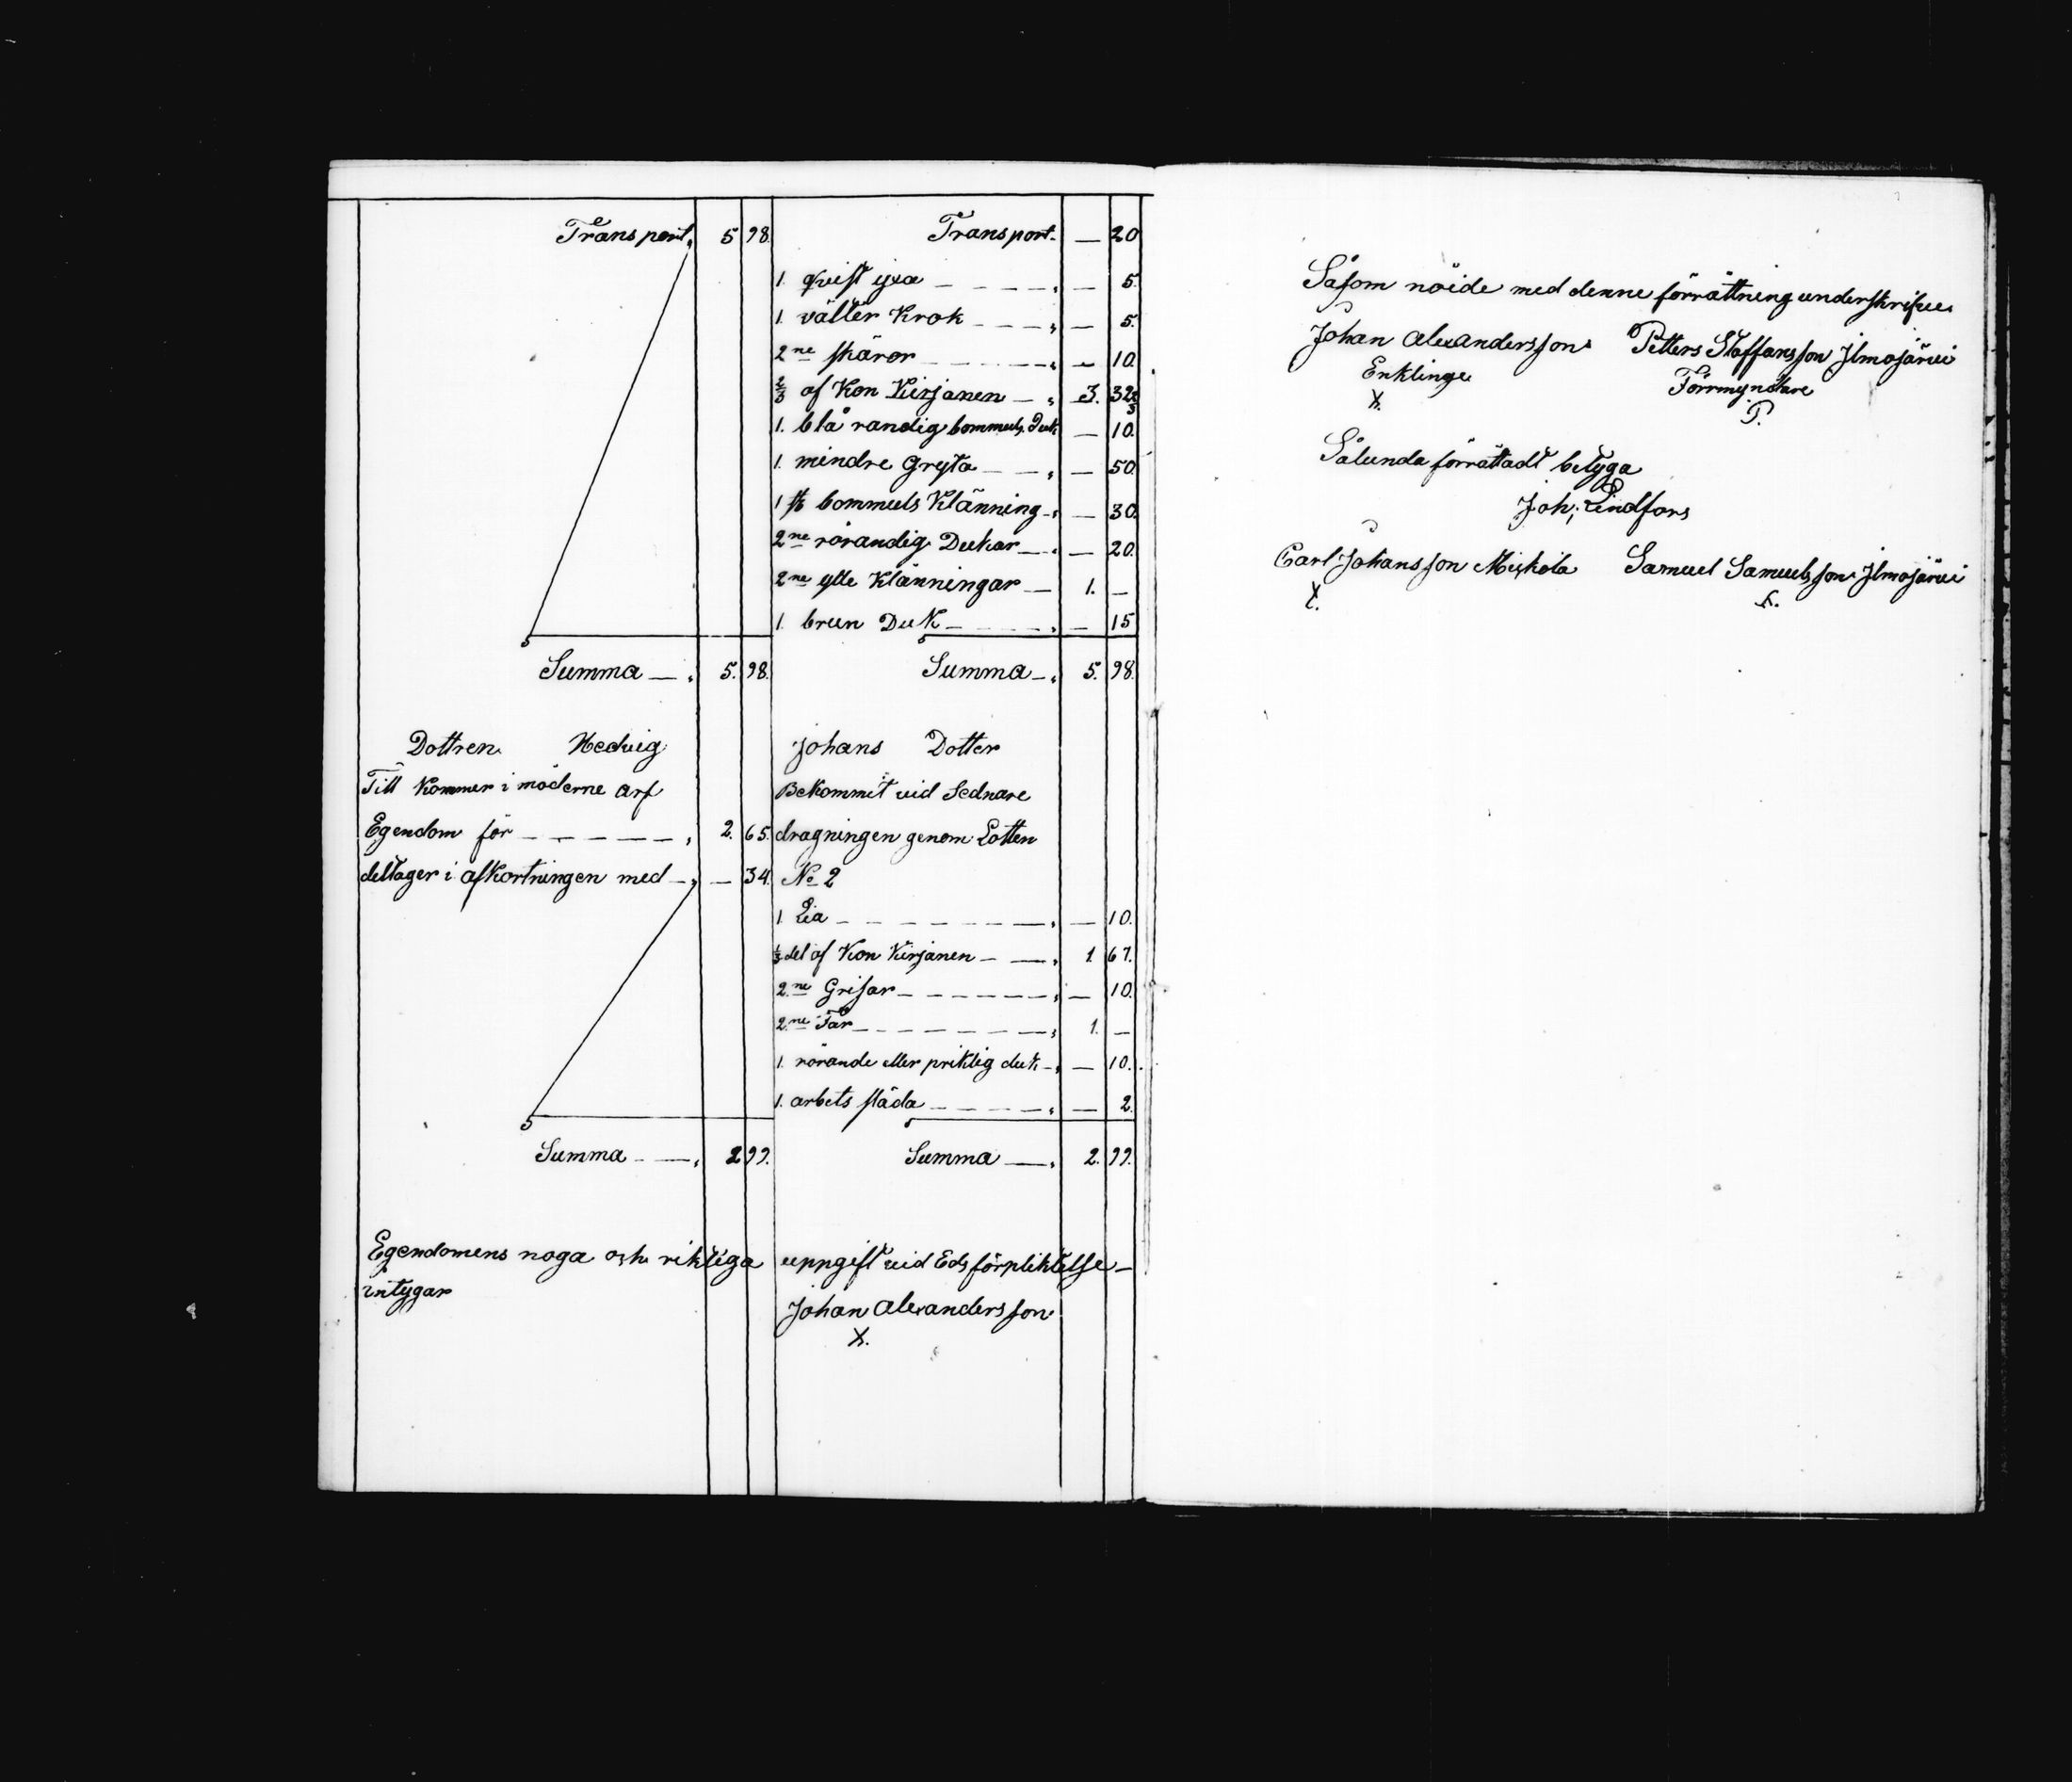 Transport, 5 98. Transport. — 20
1. qvist yxa — 5.
1. välter Krok — 5.
2ne skäror — 10.
2/3 af Kon Kirjanen — 3. 32 2/3
1. blå randig bommuls Duk — 10.
1. mindre Gryta — 50.
1 st bommuls Klänning — 30.
2ne rörandig Dukar — 20.
2ne ylle Klänningar — 1. —
1. brun Duk — 15
Summa — 5. 98. Summa — 5. 98.
Dottren Hedvig Johans Dotter
Till Kommer i möderne arf Bekommit vid Sednare
Egendom för — 2. 65. dragningen genom Lotten
deltager i afkortningen med — 34. No 2
1. Lia — 10.
1/3 del af Kon Kirjanen — 1. 67.
2ne Grisar — 10.
2ne Får — 1. —
1. rörande eller priklig duk — 10.
1. arbets släda — 2.
Summa — 2 99. Summa — 2. 99.
Egendomens noga och riktiga uppgift vid Eds förpliktelse —
intygar
Johan Alexandersson
X.
Såsom nöide med denne förrättning underskrifva
Johan Alexandersson Petters Staffansson Ilmojärvi
Enklinge Förmyndare
X. P.
Sålunda förrättadt betyga
Joh; Lindfors
Carl Johansson Miskola Samuel Samuelsson Ilmojärvi
X.